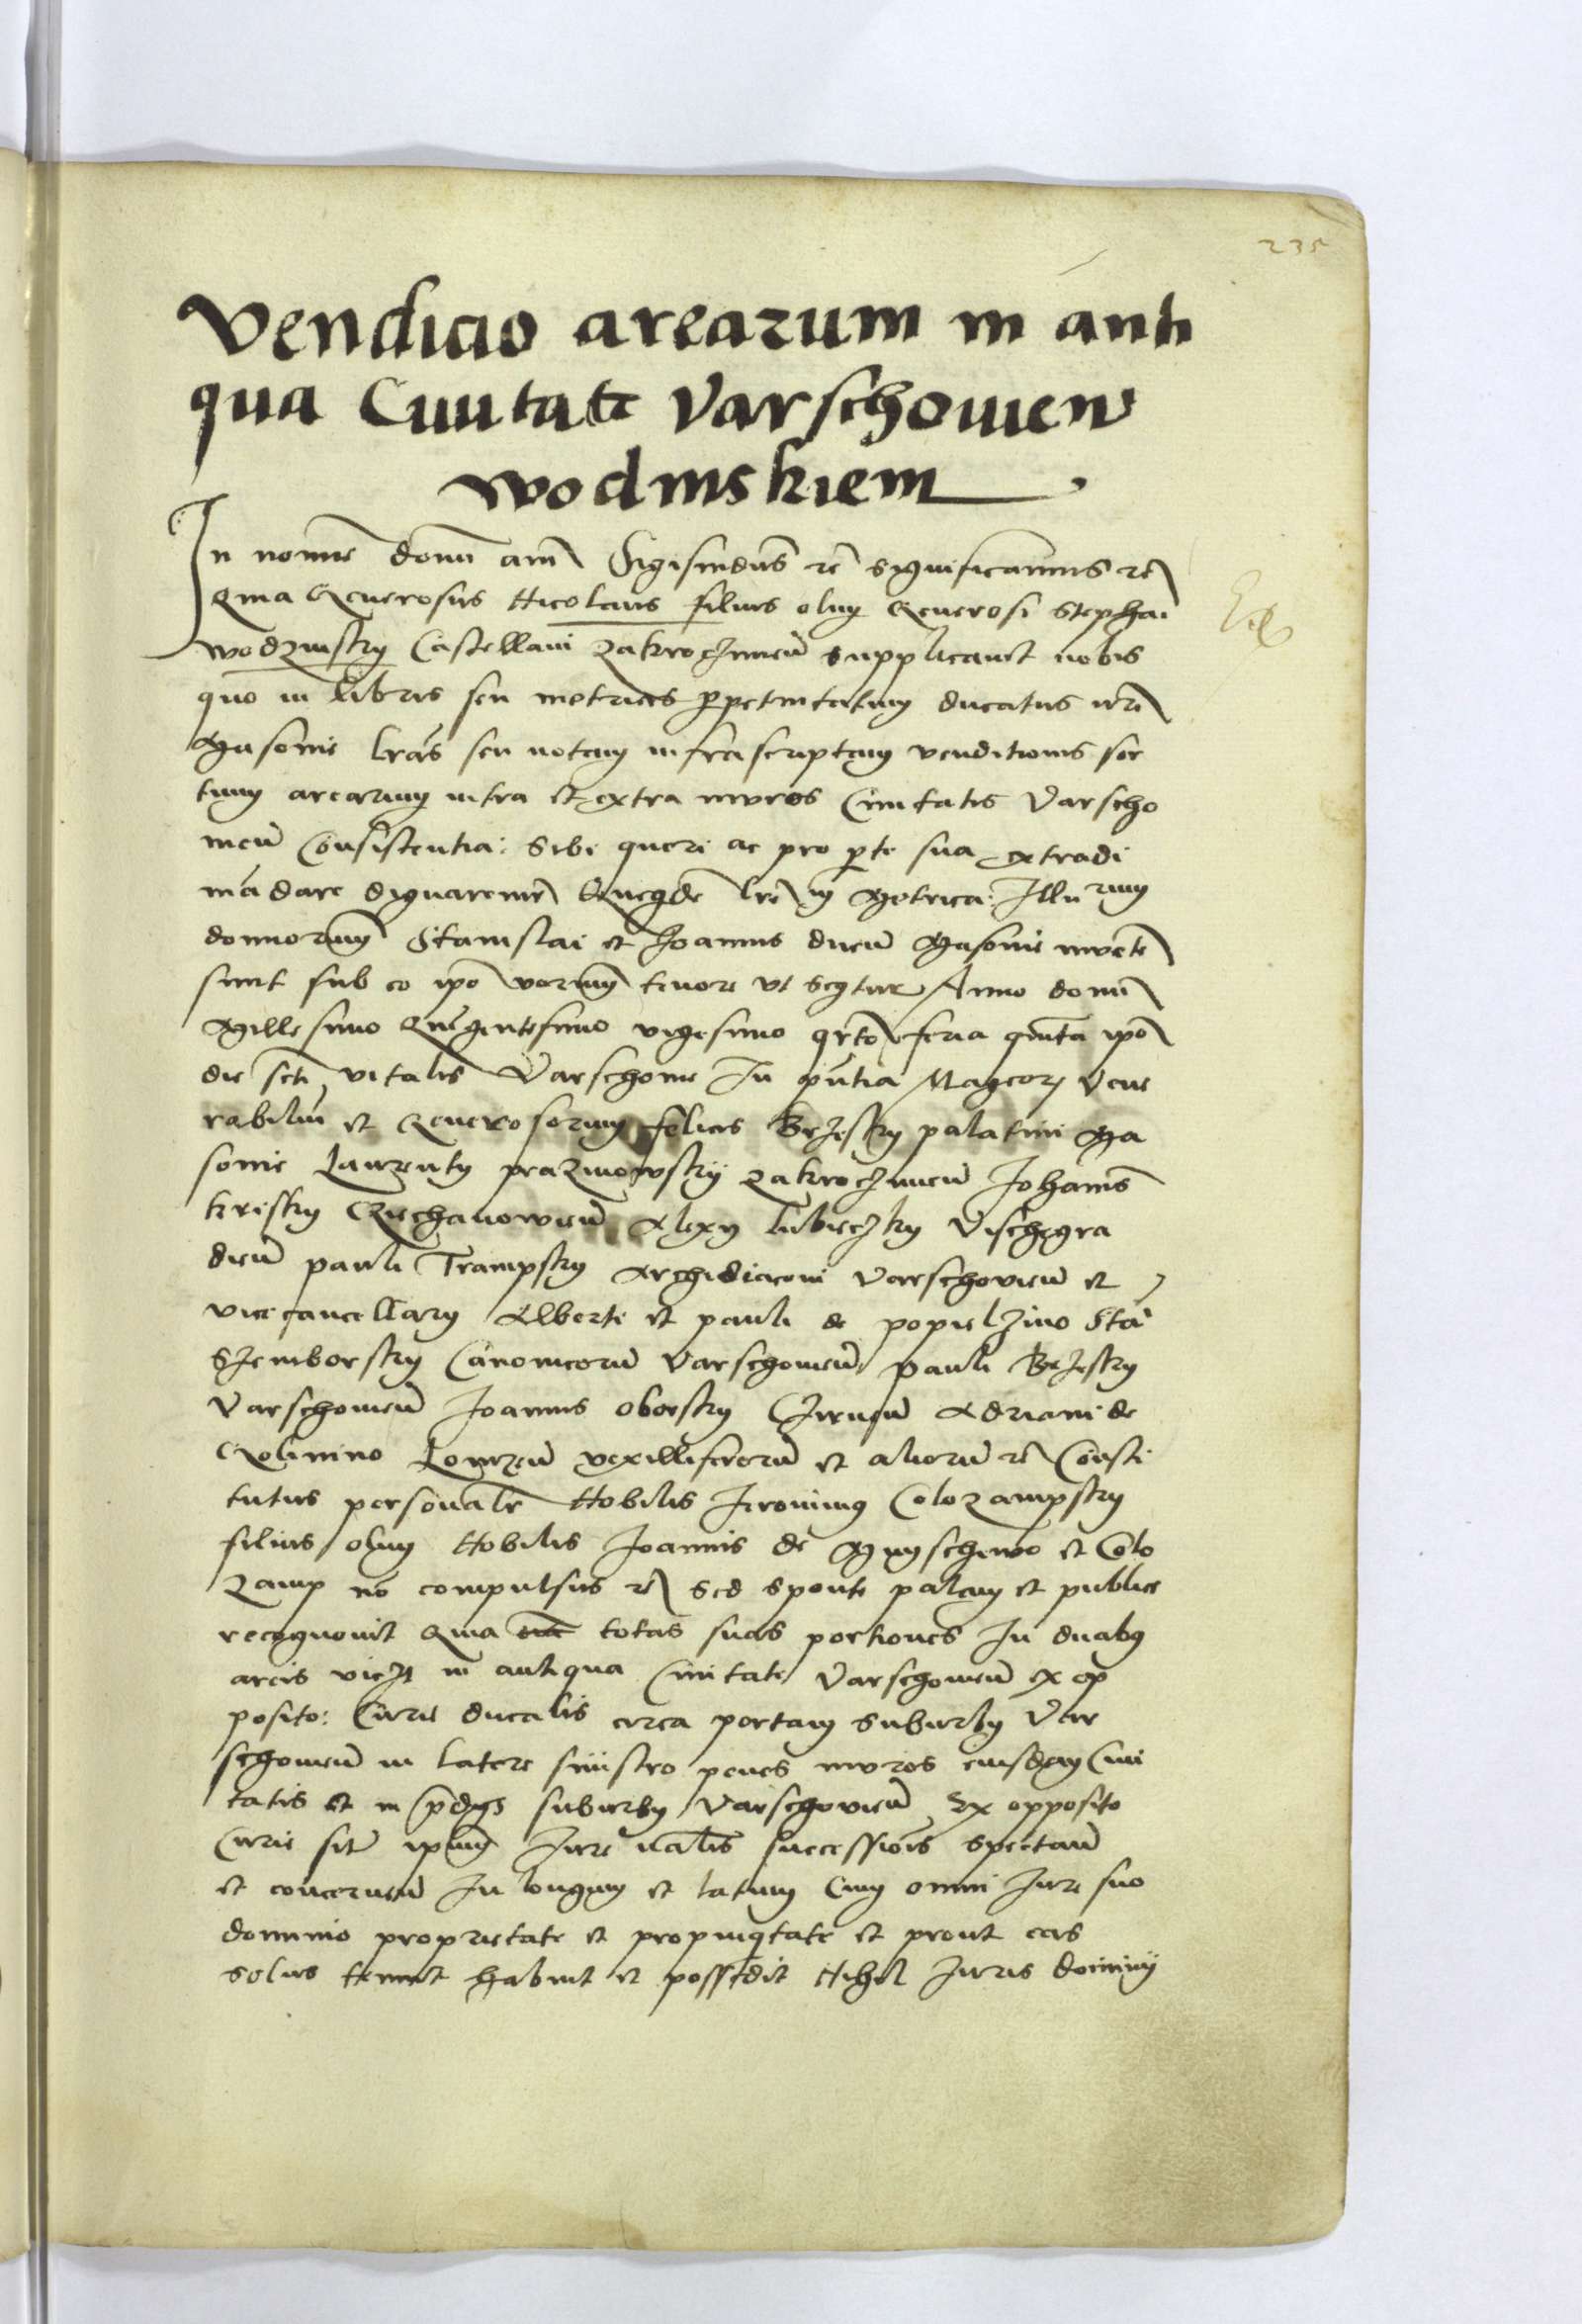 235
Vendicio arearum in anti
qua Civitate Varschovien
Wodinskiem
In nomine domi am Sigismdus re significamus re
Quia Generosus Nicolaus filius olim Generosi Stephai
Wodzinsky Castellani Zakroczimen supplicavit nobis
quo in libris seu metrices perpetuitatum ducatus nri
Masovie lras seu notam infrascriptam venditionis sor
tium arearum intra et extra muros Civitatis Varscho
vien Consistentia: Sibi queri ac pro parte sua extradi
madare dignaremur lre in Metrica: Illu rum
dominorum Stanislai et Joannis ducum Masovie invente
sunt sub eo ipo verum tenore ut seqtur Anno domi
Millesimo Quigentesimo vigesimo qrto feria quta ipo
die scti vitalis Varschovie In pntia Magcorz Vene
rabiliu et Generosorum felicis Brzesky palatini Ma
sovie Laurenty prazmowsky Zakroczimen Johannis
krisky Cziechanowien Alexy lubieczky Vischegra
dien pauli Trampsky Archidiaconi Varschovien et
vicecancellary Alberti et pauli de popielzino Sta
Szemborsky Canonicoru Varschovien pauli Brzesky
Varschovien Joannis oborsky Czirnen Adriani de
Golimino Lomzen vexilliferoru et alioru re Consti
tutus personalr Nobilis Jeronimus Colozampsky
filius olim Nobilis Joannis de Myschewo et Colo
zamp no compulsus re sed sponte palam et publice
recognovit Quia totas suas portiones In duabus
areis viczt in antiqua Civitate Varschovien ex op
posito: Curie ducalis circa portam suburby Var
schovien in latere sinistro penes muros eiusdem Civi
tatis et in suburby Varschovien Ex opposito
Curie sit ipsum Jure nalis successiois spectan
et concernen In longum et latum Cum omni Jure suo
dominio proprietate et propinqtate et prout eas
solus tenuit habuit et possedit Nihil Juris dominy